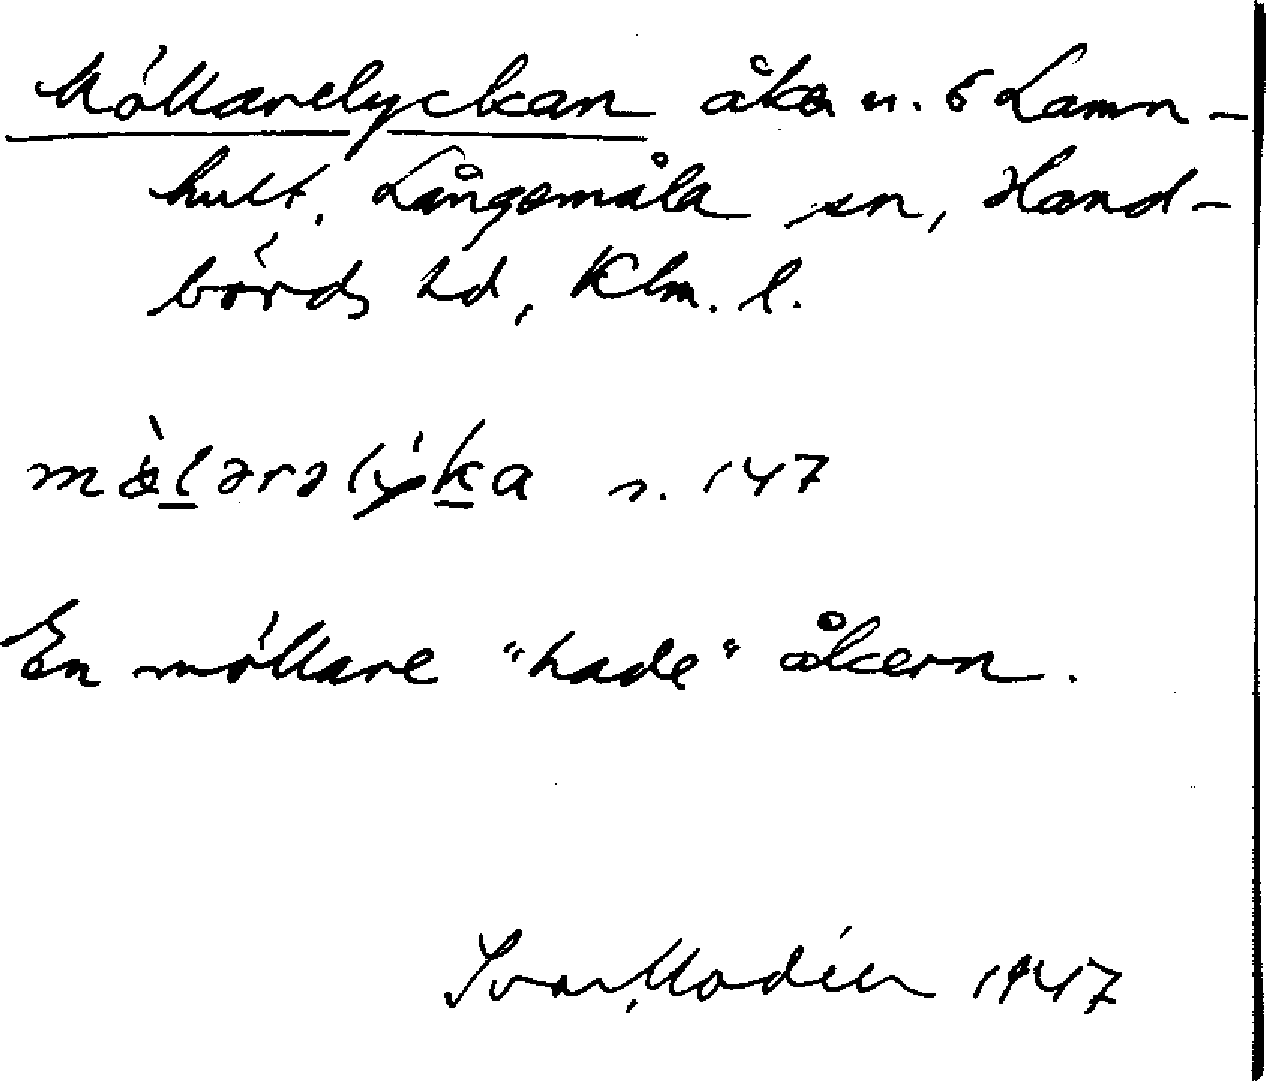 Möllarelyckan åker n. 6 Lamn-
hult, Långemåla sn, Hand-
börds hd, Klm. l.
s. 147
En möllare "hade" åkern.
Ivar Modéer 1947